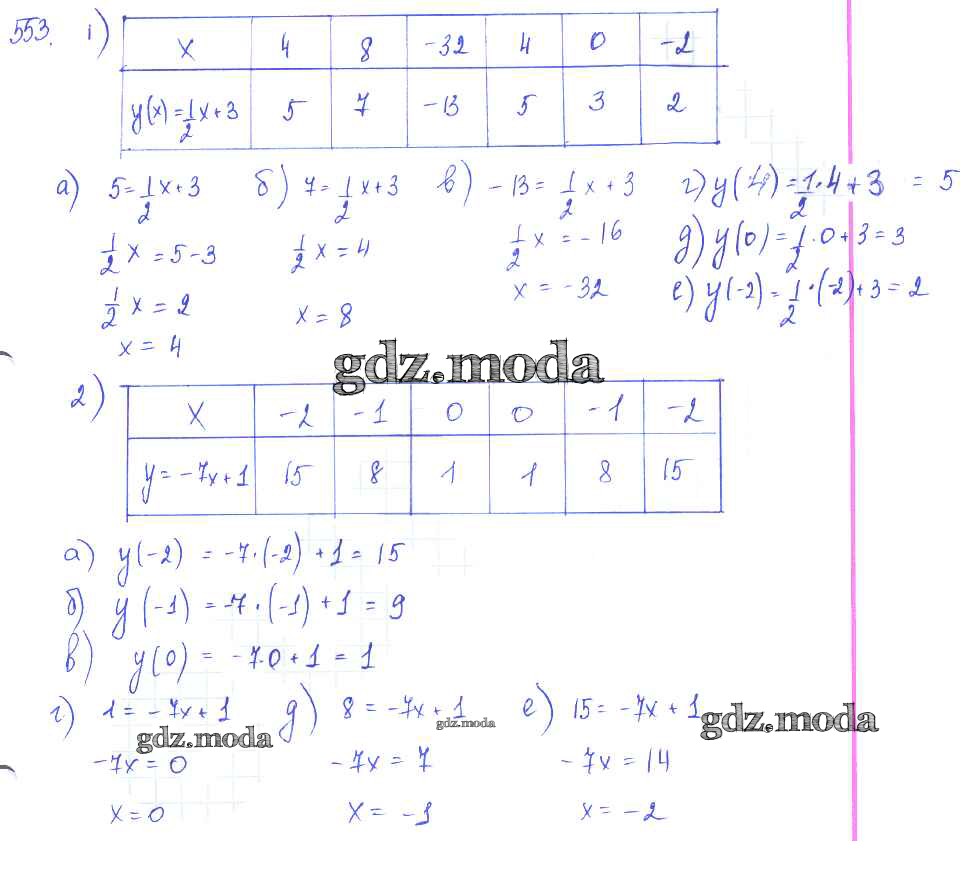 553. 1)
x 4 8 -32 4 0 -2
y(x)=1/2x+3 5 7 -13 5 3 2
а) 5=1/2x+3 б) 7=1/2x+3 в) -13=1/2x+3 г) y(4)=1/2·4+3 = 5
1/2x=5-3 1/2x=4 1/2x=-16 д) y(0)=1/2·0+3=3
1/2x=2 x=8 x=-32 е) y(-2)=1/2·(-2)+3=2
x=4
gdz.moda
2)
x -2 -1 0 0 -1 -2
y=-7x+1 15 8 1 1 8 15
а) y(-2) = -7·(-2)+1=15
б) y(-1) = -7·(-1)+1=9
в) y(0) = -7·0+1=1
г) 1=-7x+1 д) 8=-7x+1 е) 15=-7x+1
gdz.moda gdz.moda gdz.moda
-7x=0 -7x=7 -7x=14
x=0 x=-1 x=-2